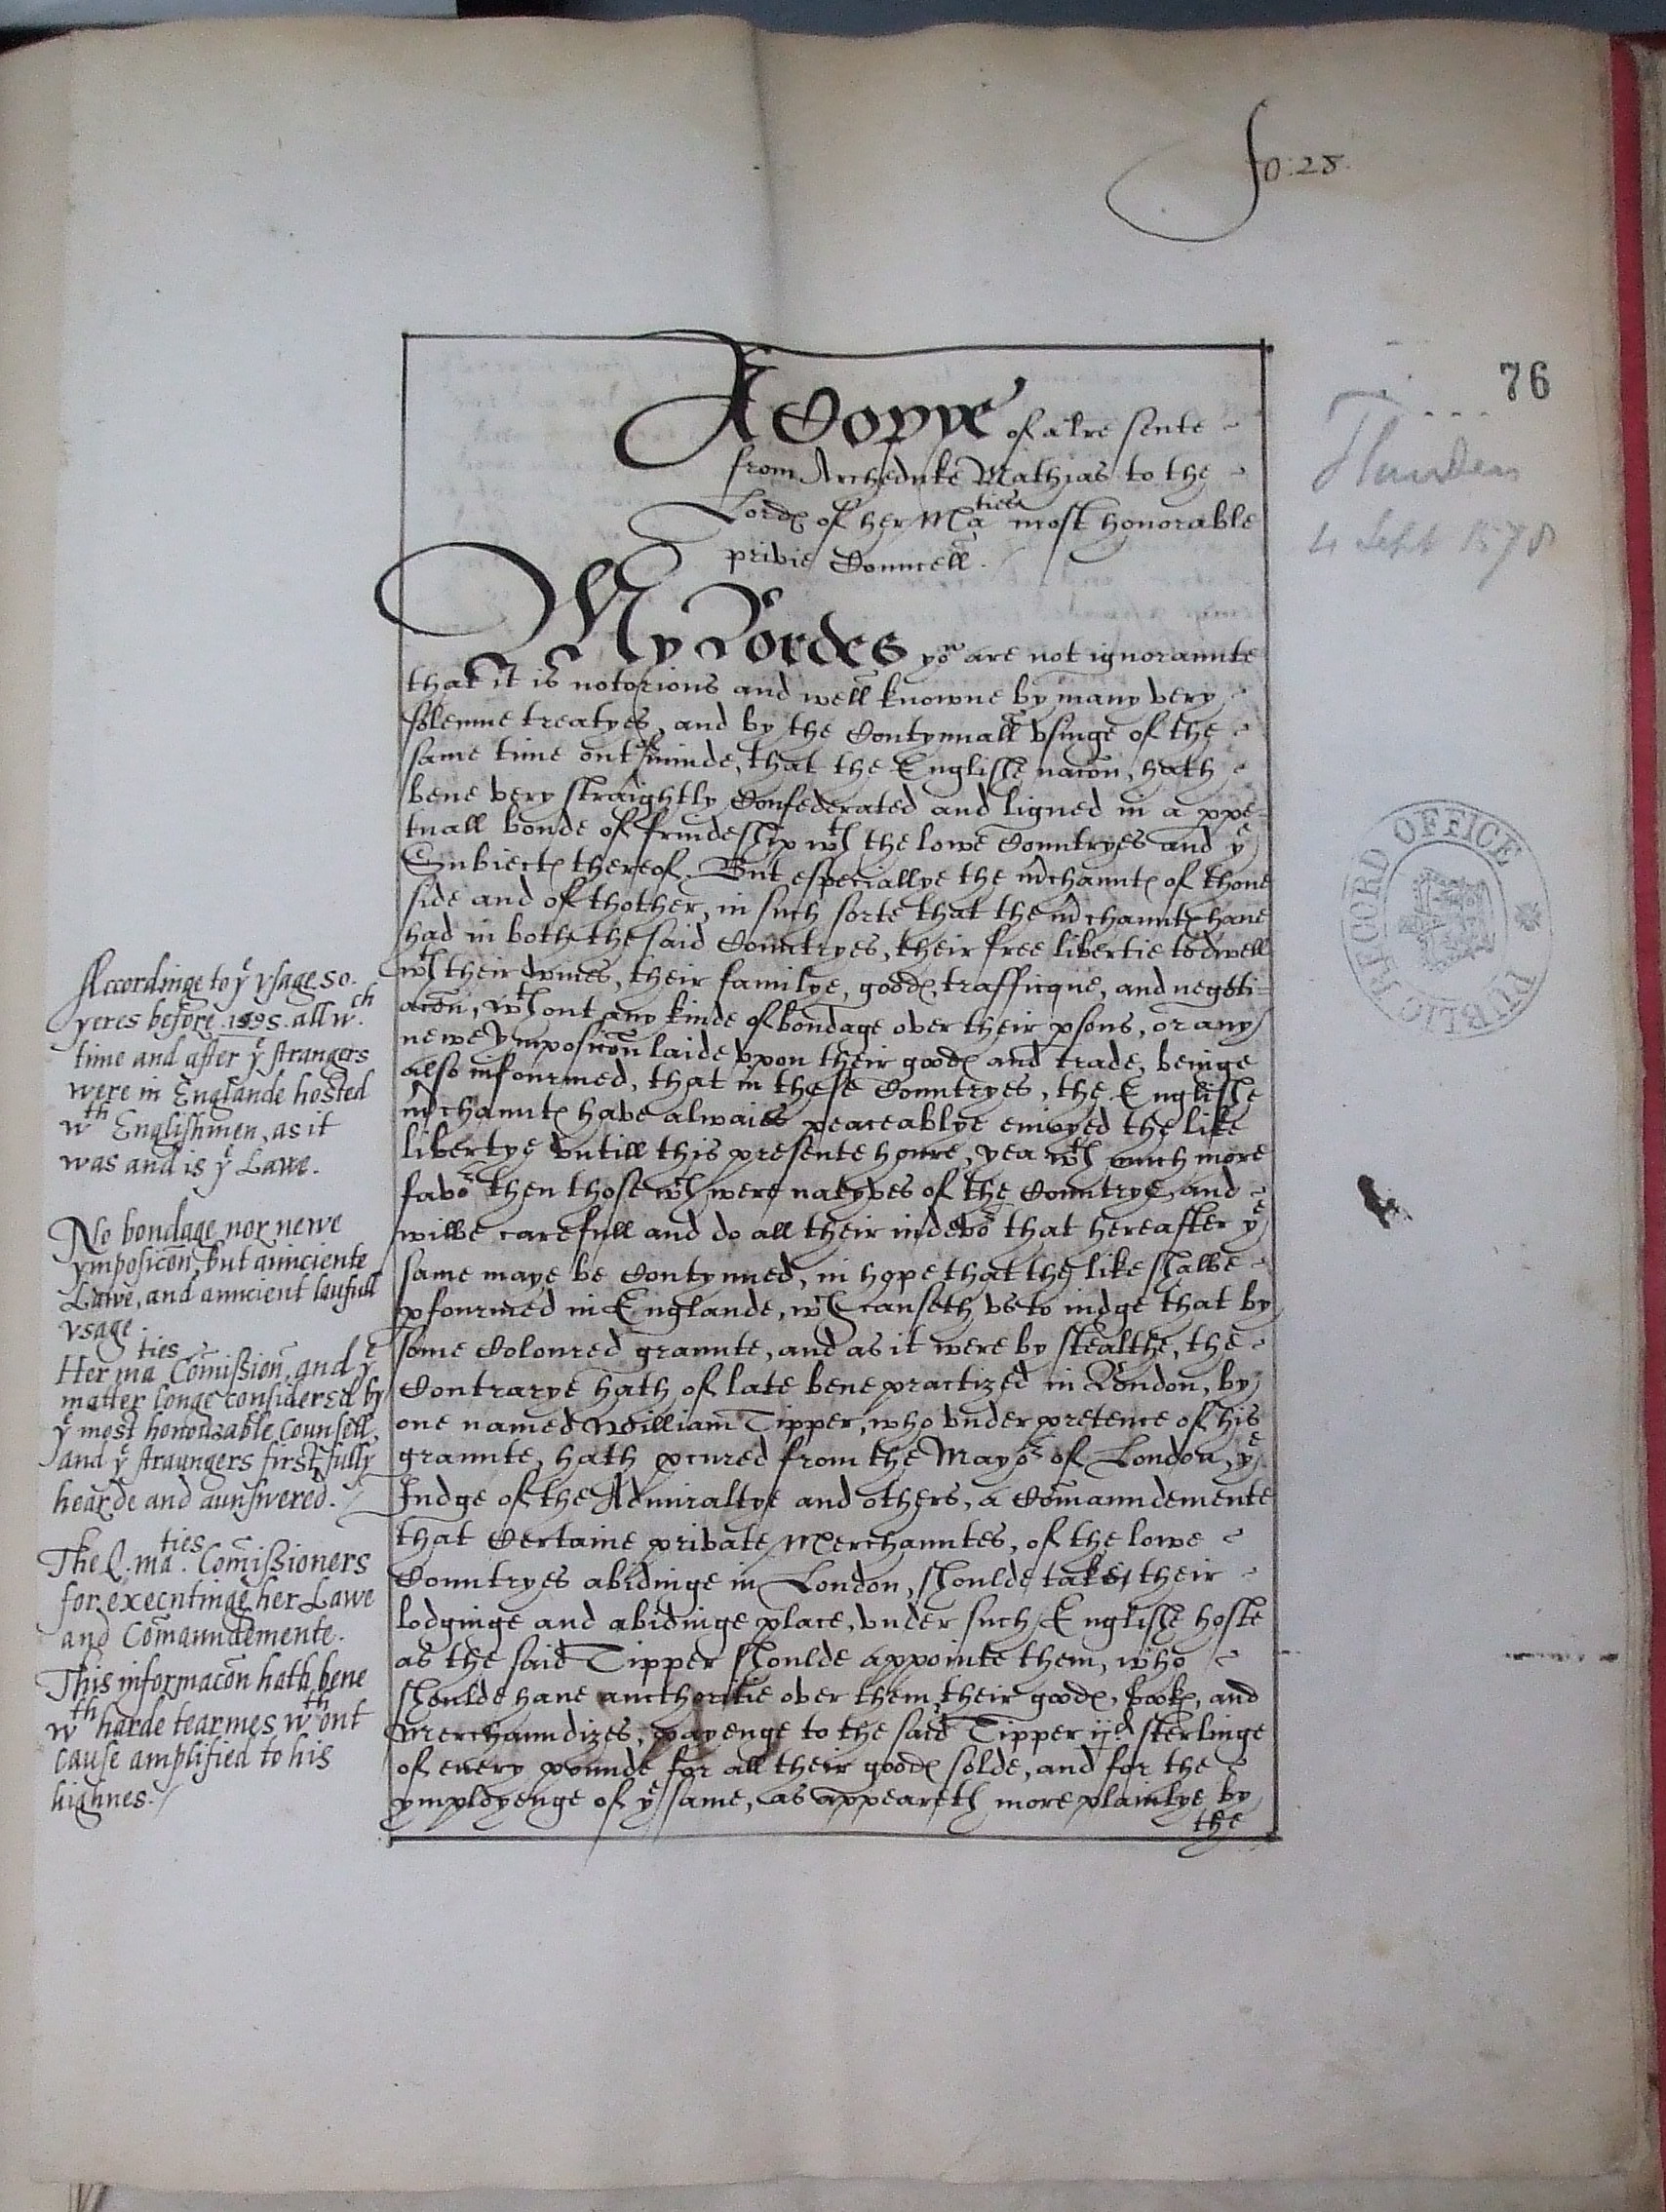 fo: 28.
76
Flanders
4 Sept 1578
A Copye of a lre sente
from Archeduke Mathias to the
Lordę of her Maties most honorable
privie Counncell.
My Lordes yow are not ignoraunte
that it is notorious and well knowne by many very
solemne treatyes, and by the Contynuall vsinge of the
same time out of minde, that the Englishe nacōn, hath
bene very straightly Confederated and ligned in a ppe-
tuall bonde of frindeship wth the lowe Countryes and ye
Subiectę thereof. But especiallye the m̄chauntę of thone
side and of thother, in such sorte that the m̄chauntę haue
had in bothe the said Countryes, their free libertie to dwell
wth their wiues, their familye, goodę, trafficque, and negoti-
acōn, wthout any kinde of bondage over their psons, or any
newe ymposicōn laide vpon their goodę and trade, beinge
also infourmed, that in these Countryes, the Englishe
m̄chauntę have alwaies peaceablye enioyed the like
libertye vntill this presente houre, yea wth much more
favor then those wch were natyves of the Countrye, and
wilbe carefull and do all their indevor that hereafter ye
same maye be Contynued, in hope that the like shalbe
pfourmed in Englande, wch causeth vs to iudge that by
some Coloured graunte, and as it were by stealthe, the
Contrarye hath of late bene practized in London, by
one named William Tipper, who vnder pretence of his
graunte, hath pcured from the Mayor of London, ye
Iudge of the Admiraltye and others, a Com̄aundemente
that Certaine private Merchauntes, of the lowe
Countryes abidinge in London, shoulde take their
lodginge and abidinge place, vnder such Englishe hoste
as the said Tipper shoulde appointe them, who
shoulde haue aucthoritie over them, their goodę, bookę, and
Merchaundizes, payenge to the said Tipper ijd sterlinge
of euery pounde for all their goodę solde, and for the
ymployenge of ye same, as appeareth more plainlye by
the
Accordinge to ye vsage so.
yeres before .1595. all wch
time and after ye strangers
were in Englande hosted
wth Englishmen, as it
was and is ye Lawe.
No bondage nor newe
ymposicōn, but aunciente
Lawe, and auncient laufull
vsage.
Her maties Com̄ission, and ye
matter longe considered by
ye most honourable Counsell,
and ye straungers first fully
hearde and aunswered.
The Q. maties. Com̄issioners
for executinge her Lawe
and Com̄aundemente.
This informacōn hath bene
wth harde tearmes wthout
cause amplified to his
highnes.
PUBLIC RECORD OFFICE